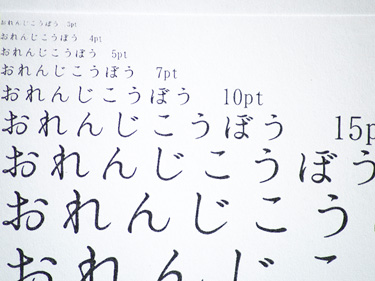 おれんじこうぼう 3pt
おれんじこうぼう 4pt
おれんじこうぼう 5pt
おれんじこうぼう 7pt
おれんじこうぼう 10pt
おれんじこうぼう 15p
おれんじこうぼう
おれんじこう
おれんじこ